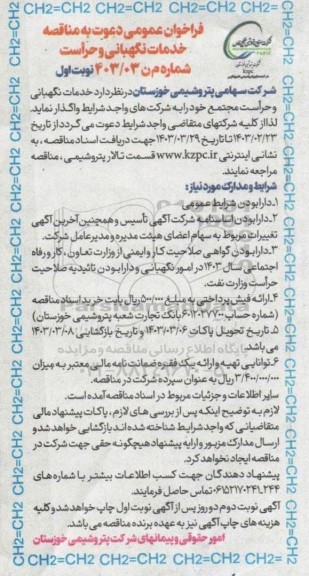 فراخوان عمومی دعوت به مناقصه
خدمات نگهبانی و حراست
شماره م ن ۴۰۳/۰۳ نوبت اول
شرکت سهامی پتروشیمی خوزستان در نظر دارد خدمات نگهبانی
و حراست مجتمع خود را به شرکت های واجد شرایط واگذار نماید.
لذا از کلیه شرکتهای متقاضی واجد شرایط دعوت می گردد از تاریخ
۱۴۰۳/۰۲/۲۳ تا تاریخ ۱۴۰۳/۰۳/۲۹ جهت دریافت اسناد مناقصه ، به
نشانی اینترنتی www.kzpc.ir قسمت تالار پتروشیمی ، مناقصه
مراجعه نمایند.
شرایط و مدارک مورد نیاز :
۱. دارا بودن شرایط عمومی
۲. دارا بودن اساسنامه شرکت آگهی تأسیس و همچنین آخرین آگهی
تغییرات مربوط به سهام اعضای هیئت مدیره و مدیر عامل شرکت.
۳. دارا بودن گواهی صلاحیت کار و ایمنی از وزارت تعاون ، کار و رفاه
اجتماعی سال ۱۴۰۳ در امور نگهبانی و دارا بودن تائیدیه صلاحیت
حراست وزارت نفت.
۴. ارائه فیش پرداختی به مبلغ ۵۰۰/۰۰۰ ریال بابت خرید اسناد مناقصه
(شماره حساب ۶۰۱۲۰۳۷۷۰۰ بانک تجارت شعبه پتروشیمی خوزستان)
۵. تاریخ تحویل پاکات ۱۴۰۳/۰۳/۰۶ و تاریخ بازگشایی ۱۴۰۳/۰۳/۰۸
می باشد.
۶. توانایی تهیه و ارائه یک فقره ضمانت نامه مالی معتبر به میزان
۳/۴۰۰/۰۰۰/۰۰۰ ریال به عنوان سپرده شرکت در مناقصه.
سایر اطلاعات و جزئیات مربوط در اسناد مناقصه آمده است.
لازم به توضیح اینکه پس از بررسی های لازم ، پاکات پیشنهاد مالی
متقاضیانی که واجد شرایط شناخته شده اند بازگشایی خواهد شد و
ارسال مدارک مزبور و ارایه پیشنهاد هیچگونه حقی جهت شرکت در
مناقصه ایجاد نخواهد کرد.
پیشنهاد دهندگان جهت کسب اطلاعات بیشتر با شماره های
۰۶۱۵۲۱۷۰۲۴۱-۲۴۴ تماس حاصل فرمایند.
آگهی نوبت دوم دو روز پس از آگهی نوبت اول چاپ خواهد شد و کلیه
هزینه های چاپ آگهی نیز به عهده برنده مناقصه می باشد.
امور حقوقی و پیمانهای شرکت پتروشیمی خوزستان